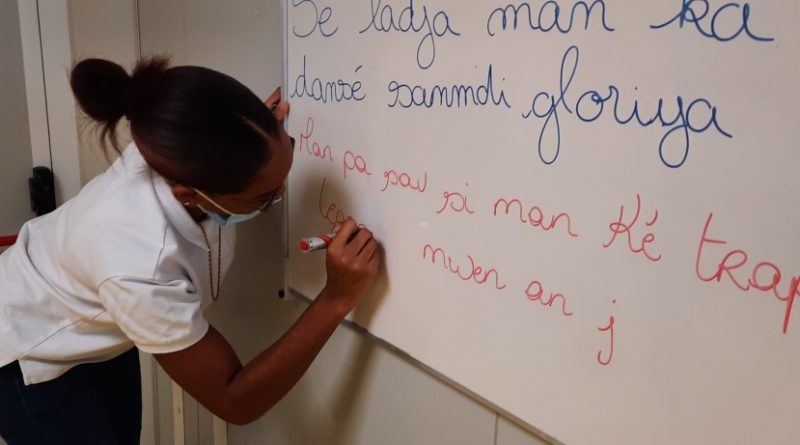 Se ladja man ka
dansé sanmdi gloriya
Man pa sav si man ké trap
mwen an j